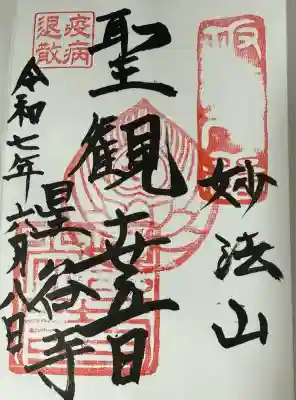 妙法山
聖観世音
疫病
退散
星谷寺
令和七年六月八日